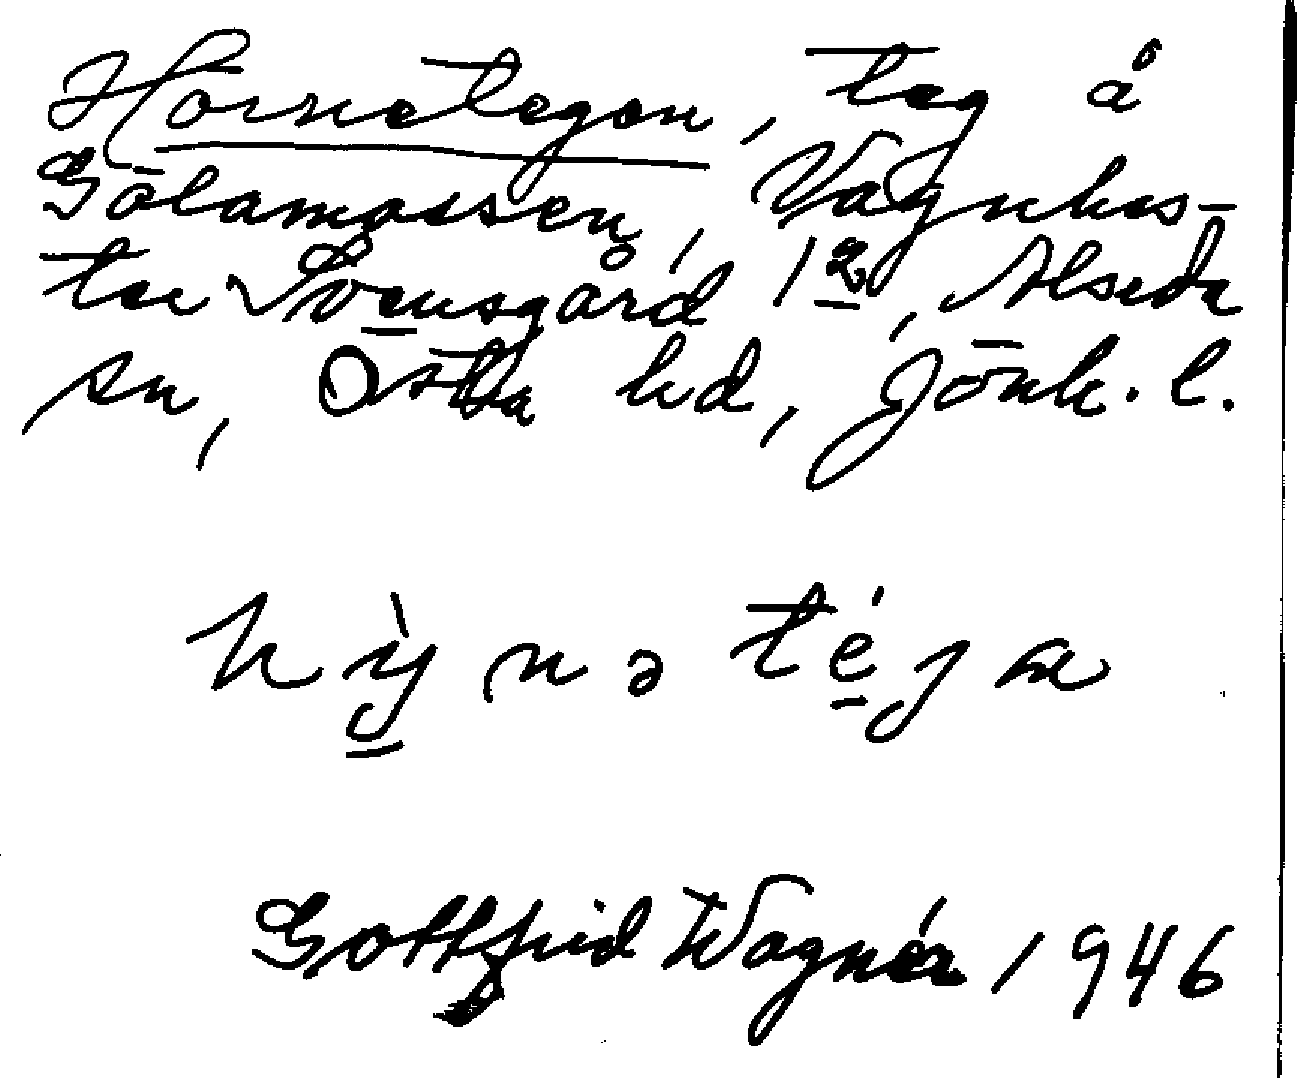 Hörnetegen, teg å
Gölamossen, Vagnhes-
ter Svensgård 1², Alseda
sn, Östra hd, Jönk. l.
hỳnə téja
Gottfrid Wagnér 1946